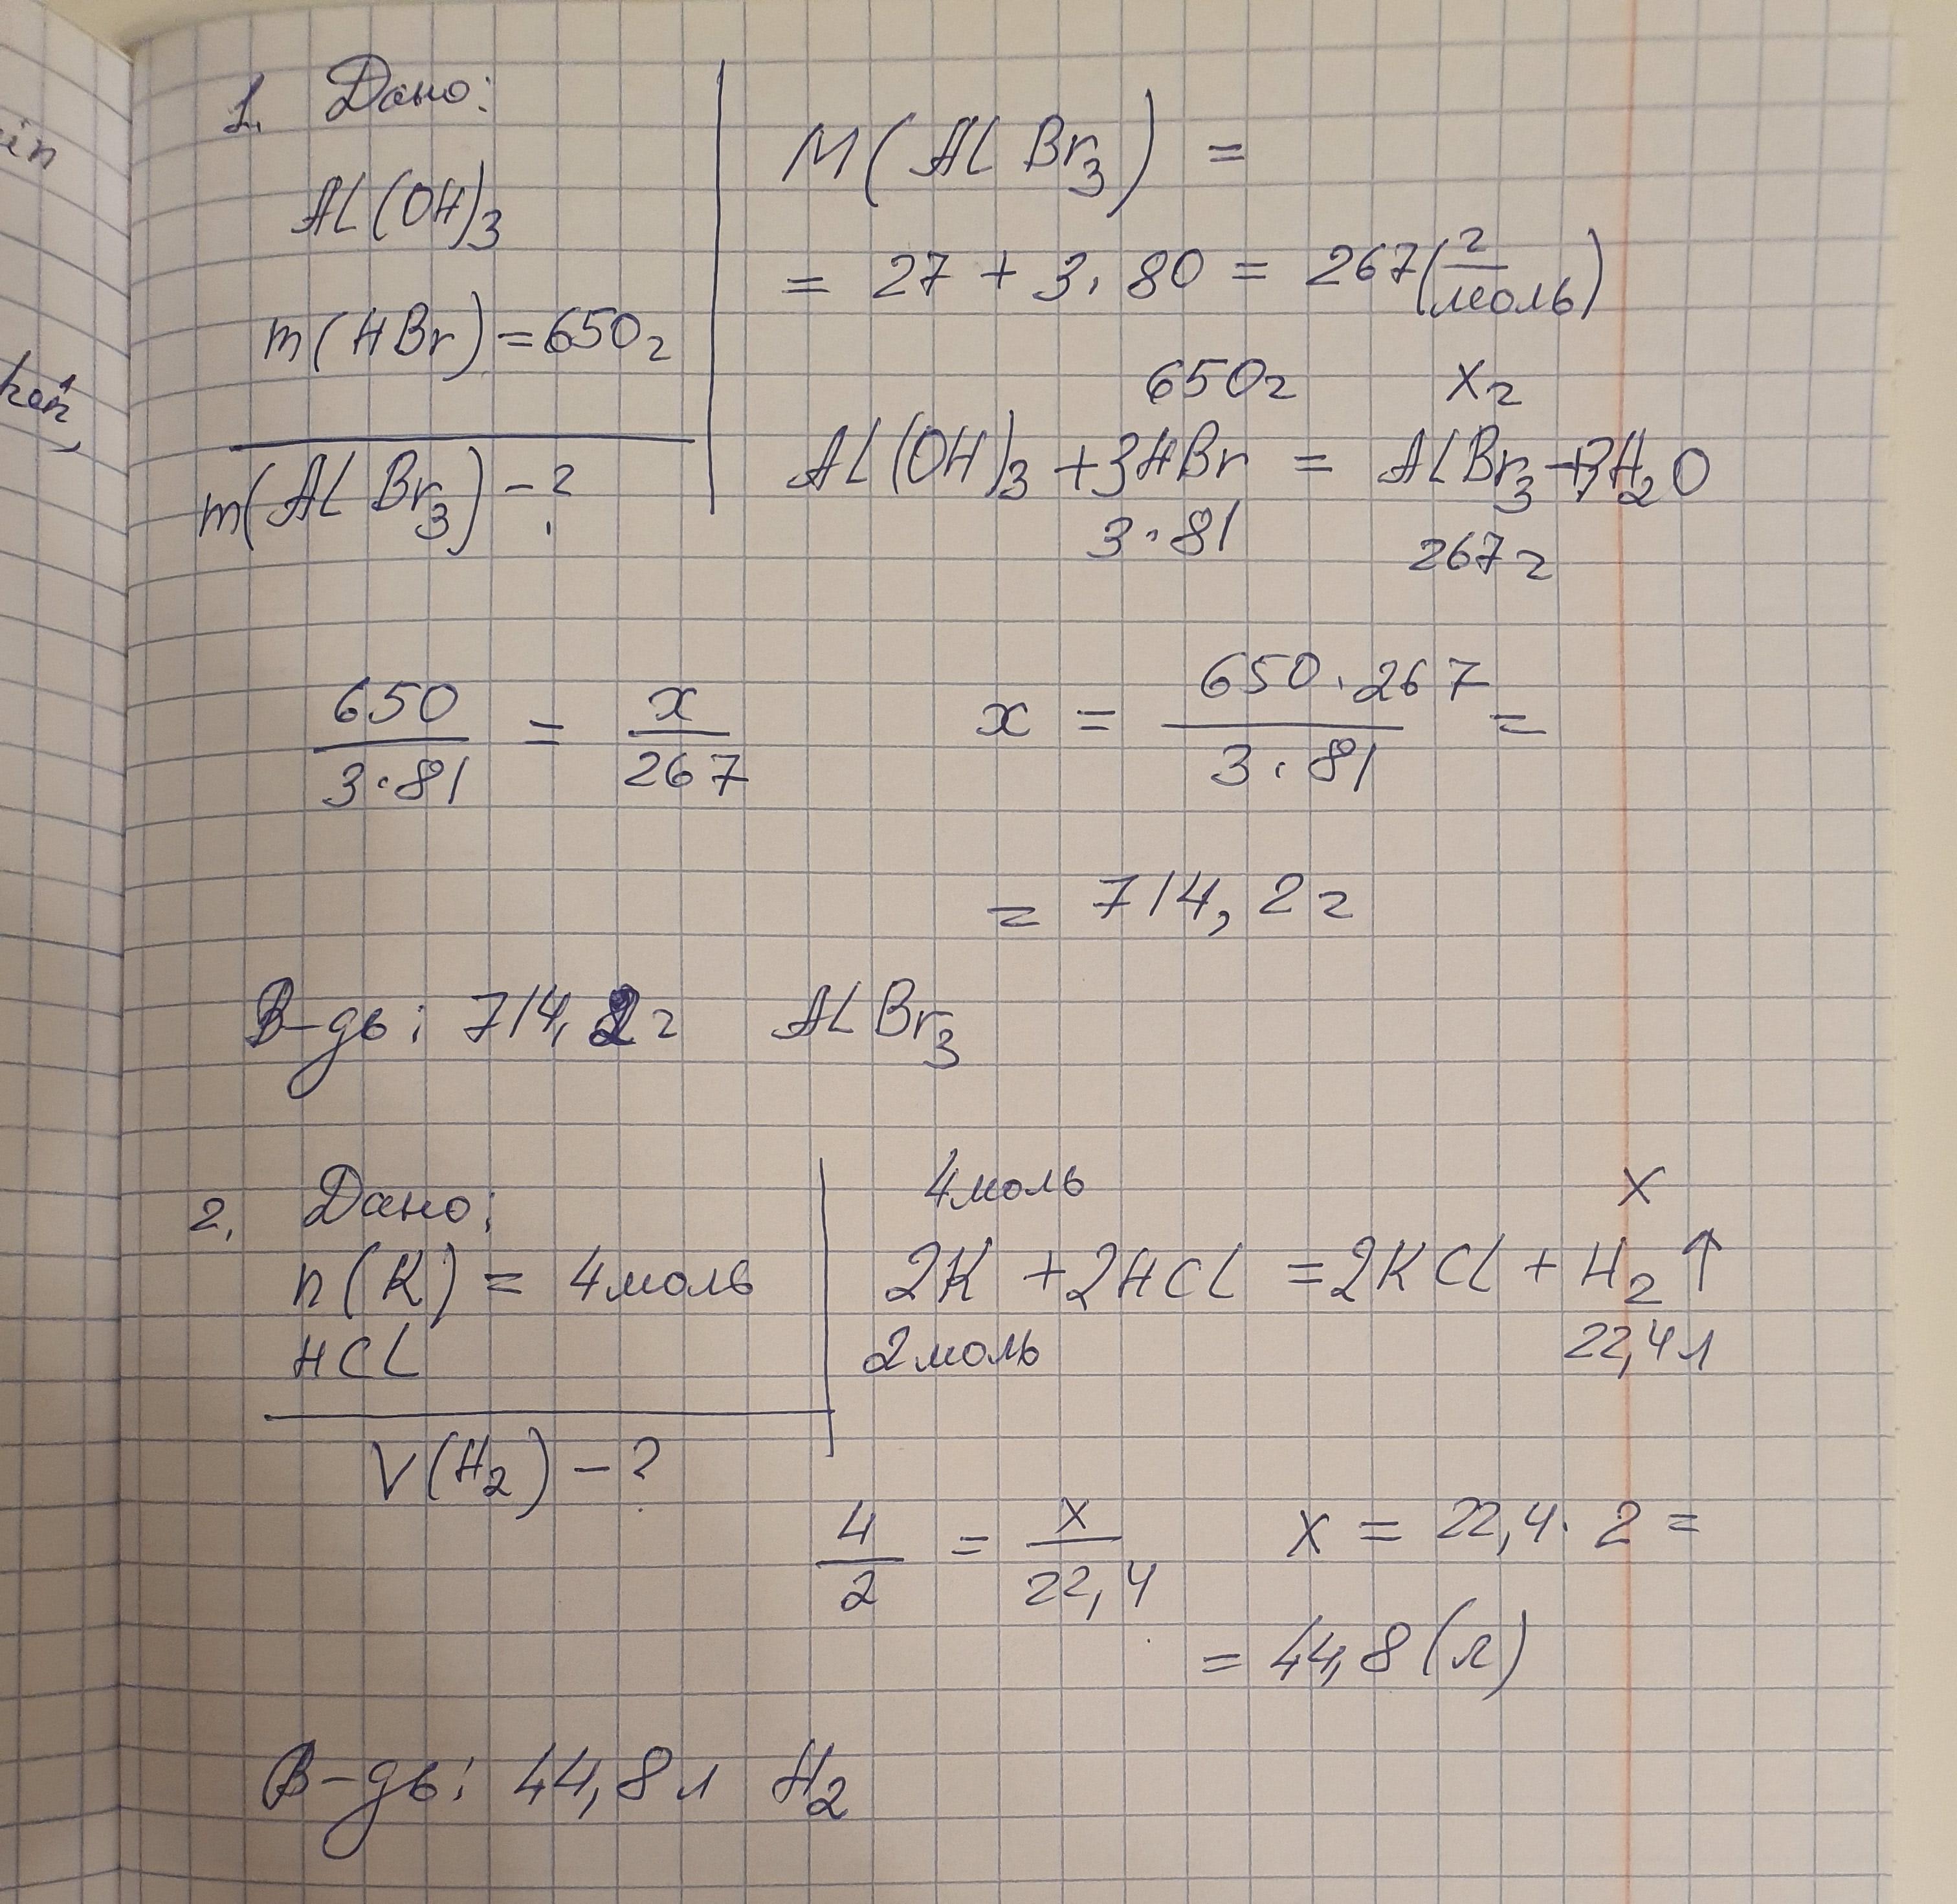 1. Дано:
AL(OH)3
m(HBr)=650г
m(ALBr3)-?
M(ALBr3) =
= 27 + 3·80 = 267(г/моль)
650г xг
AL(OH)3 + 3HBr = ALBr3 + 3H2O
3·81 267г
650/3·81 = x/267 x = 650·267/3·81 =
= 714,2г
В-дь: 714,2г ALBr3
2. Дано:
n(K) = 4моль
HCL
V(H2) - ?
4моль x
2K + 2HCL = 2KCL + H2↑
2моль 22,4л
4/2 = x/22,4 x = 22,4·2 =
= 44,8(л)
В-дь: 44,8л H2